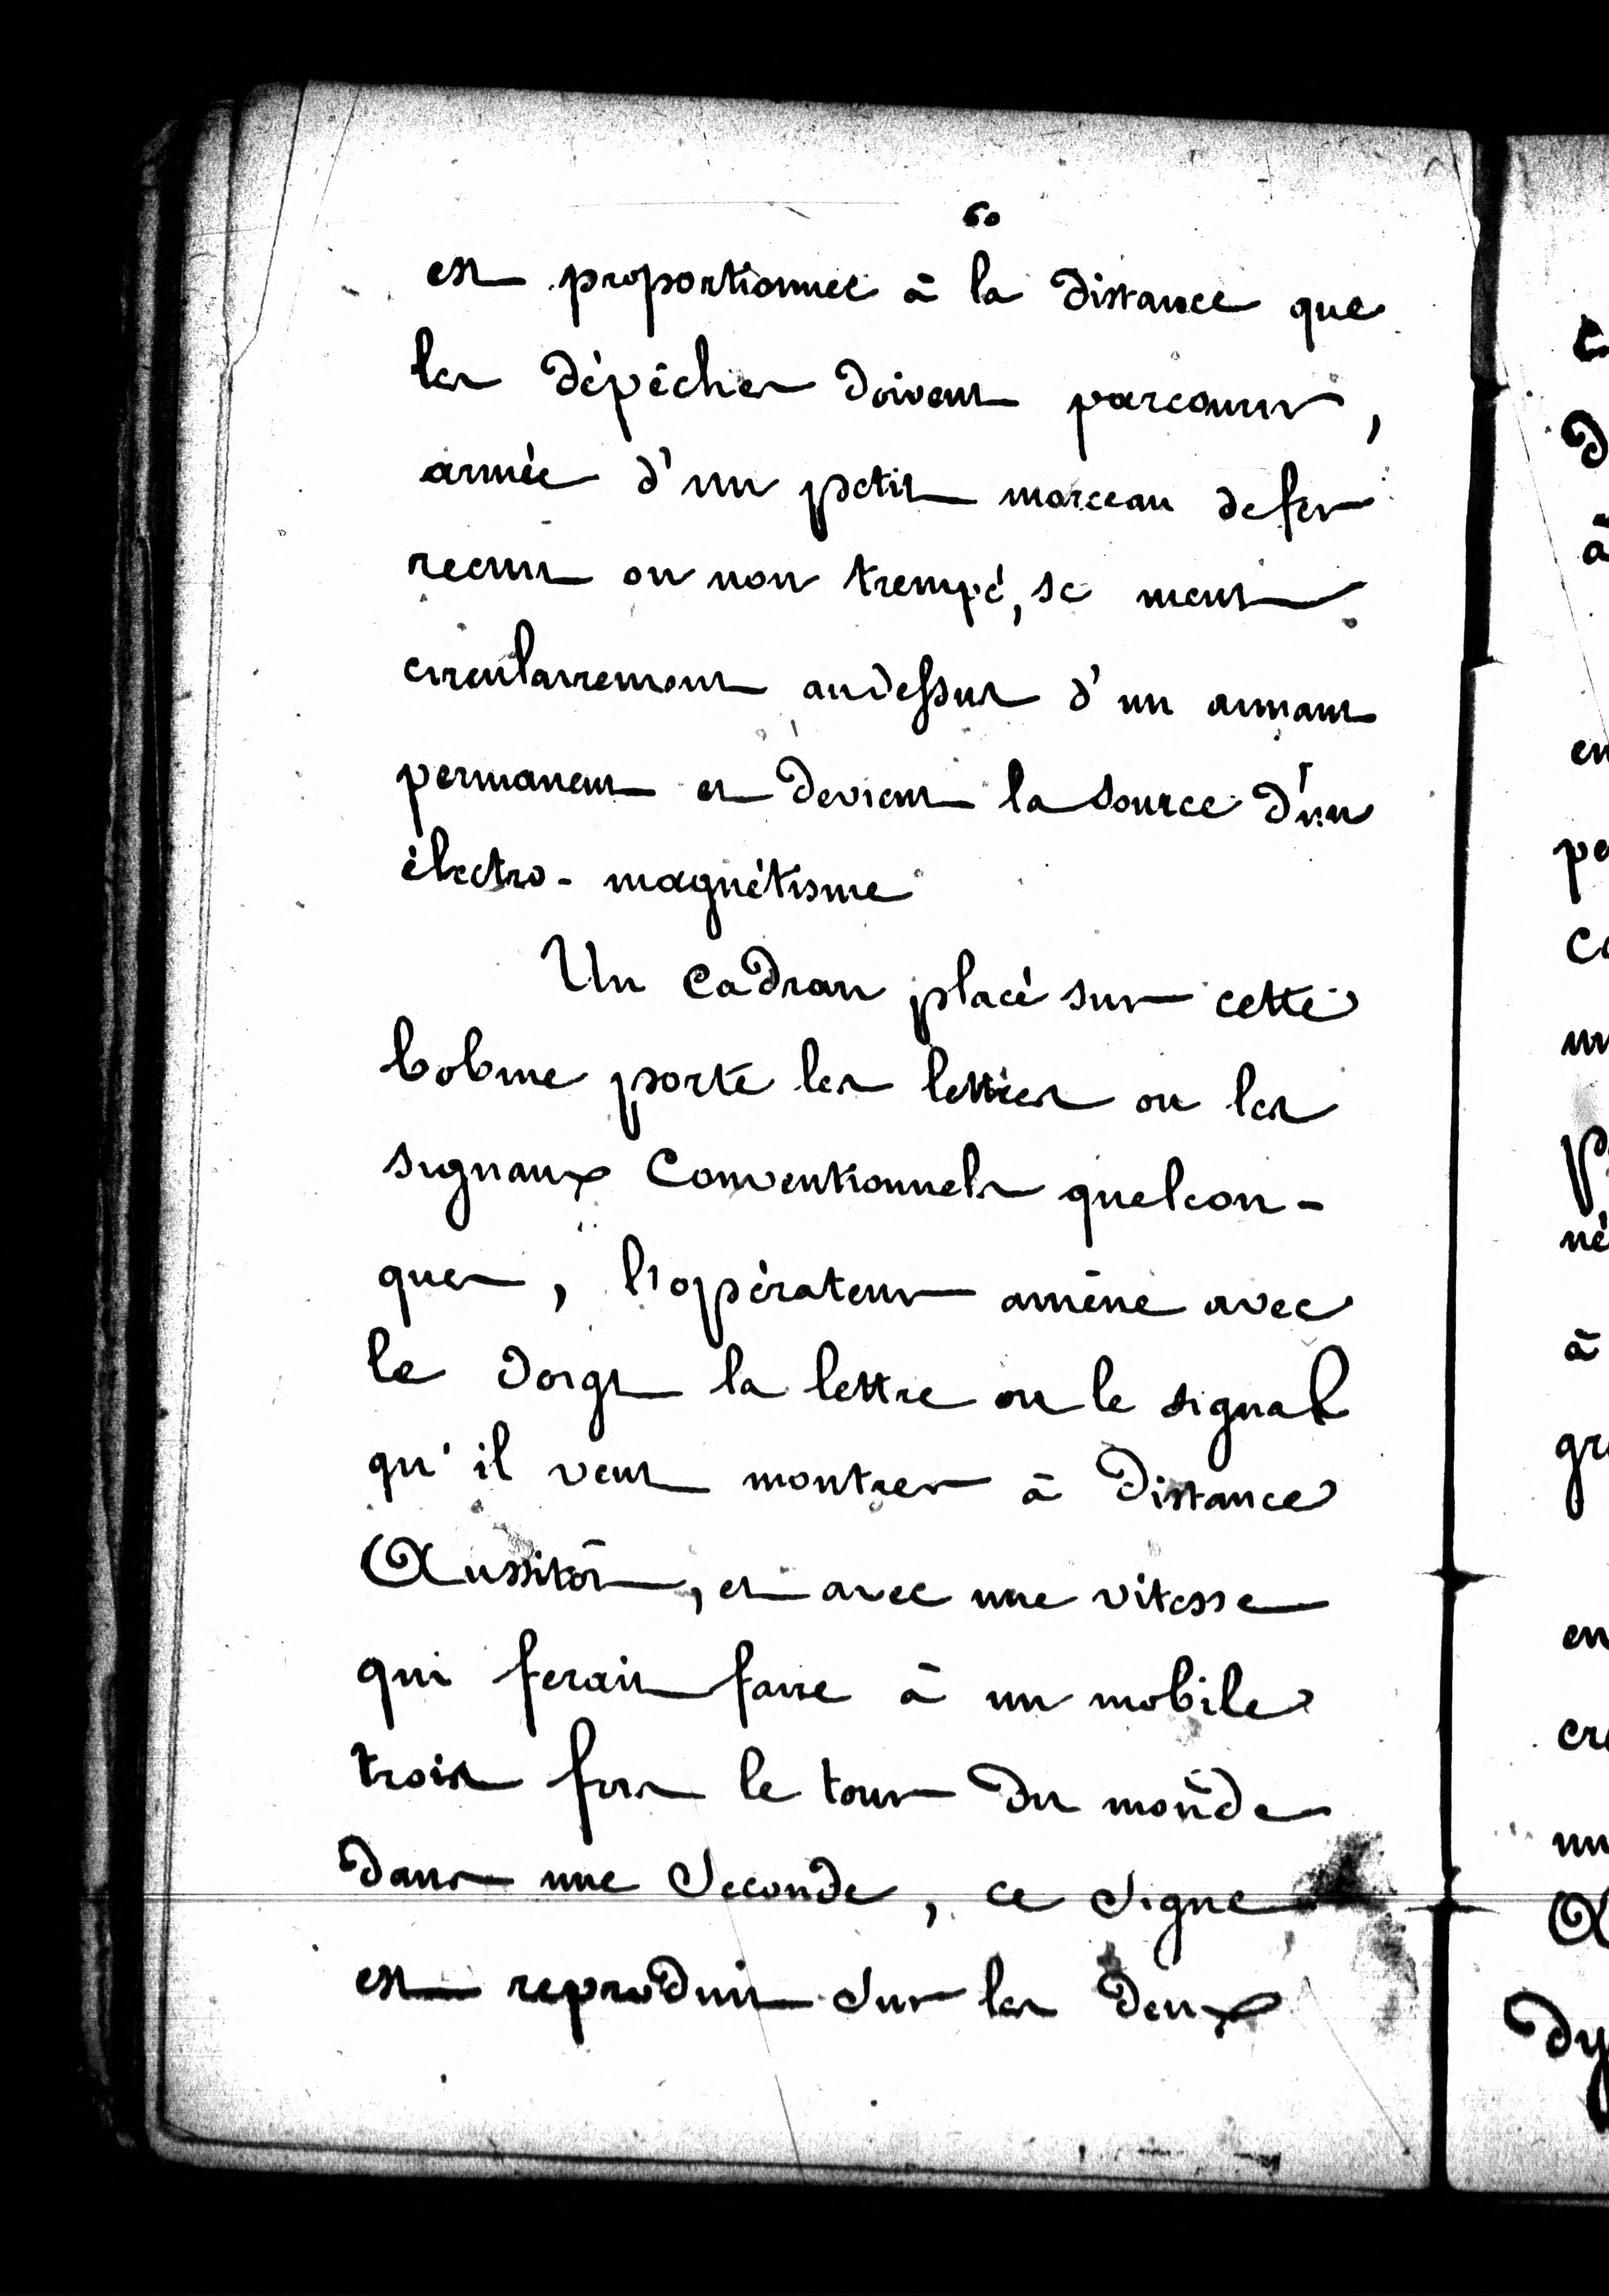 60
est proportionnée à la distance que
les dépêches doivent parcourir,
armée d'un petit morceau de fer
recuit ou non trempé, se meut
circulairement audessus d'un aimant
permanent et devient la source d'un
électro-magnétisme
Un Cadran placé sur cette
bobine porte les lettres ou les
signaux Conventionnels quelcon-
ques, l'opérateur amène avec
le doigt la lettre ou le signal
qu'il veut montrer à distance
Aussitôt, et avec une vitesse
qui ferait faire à un mobile
trois fois le tour du monde
dans une Seconde, ce Signe
est reproduit Sur les deux